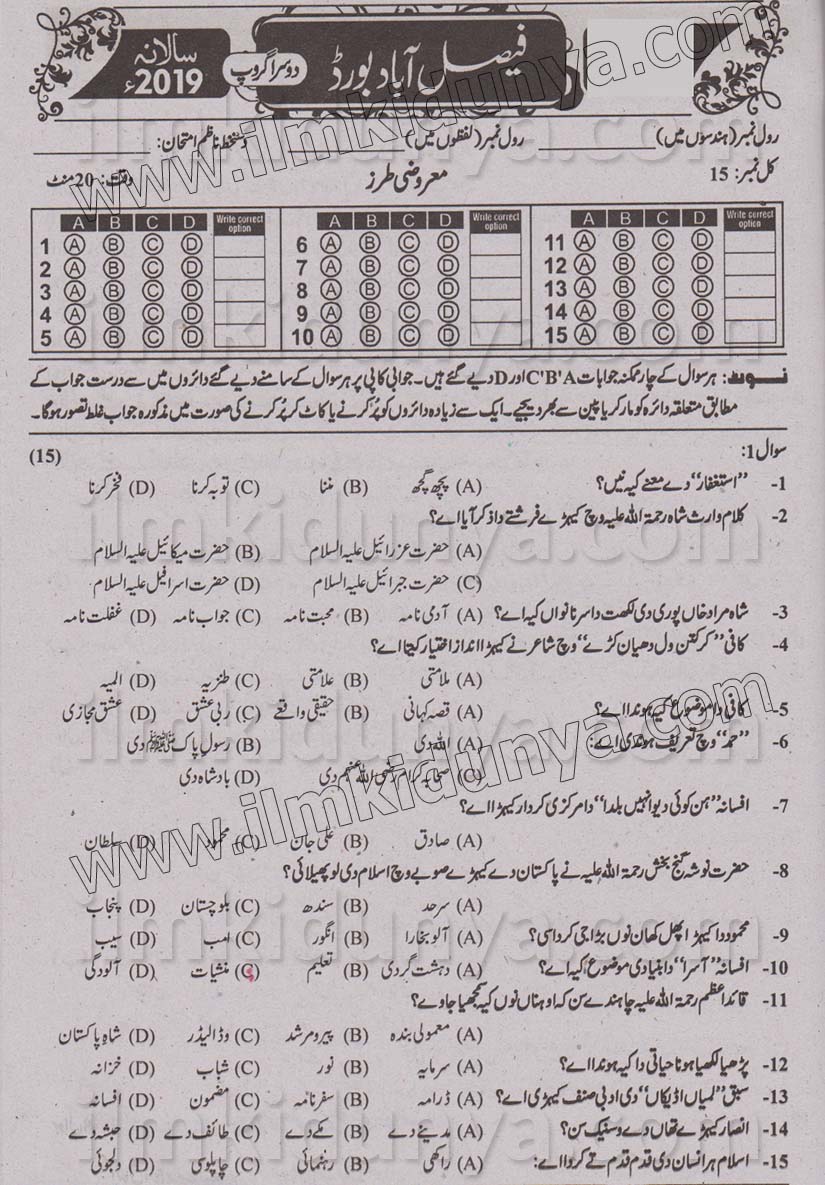 فیصل آباد بورڈ
دوسرا گروپ
سالانہ 2019ء
رول نمبر (ہندسوں میں) ________ رول نمبر (لفظوں میں) ________ دستخط ناظم امتحان: ________
کل نمبر: 15 معروضی طرز وقت: 20 منٹ
A B C D Write correct option A B C D Write correct option A B C D Write correct option
1 A B C D 6 A B C D 11 A B C D
2 A B C D 7 A B C D 12 A B C D
3 A B C D 8 A B C D 13 A B C D
4 A B C D 9 A B C D 14 A B C D
5 A B C D 10 A B C D 15 A B C D
نوٹ: ہر سوال کے چار ممکنہ جوابات C'B'A اور D دیے گئے ہیں۔ جوابی کاپی پر ہر سوال کے سامنے دیے گئے دائروں میں سے درست جواب کے
مطابق متعلقہ دائرہ کو مارکر یا پین سے بھر دیجیے۔ ایک سے زیادہ دائروں کو پُر کرنے یا کاٹ کر پُر کرنے کی صورت میں مذکورہ جواب غلط تصور ہوگا۔
سوال 1: (15)
1- ”استغفار“ دے معنے کیہ نیں؟ (A) پچھ گچھ (B) مننا (C) توبہ کرنا (D) فخر کرنا
2- کلام وارث شاہ رحمۃ اللہ علیہ وچ کیہڑے فرشتے دا ذکر آیا اے؟
(A) حضرت عزرائیل علیہ السلام (B) حضرت میکائیل علیہ السلام
(C) حضرت جبرائیل علیہ السلام (D) حضرت اسرافیل علیہ السلام
3- شاہ مراد خاں پوری دی لکھت دا سرناواں کیہ اے؟ (A) آدمی نامہ (B) محبت نامہ (C) جواب نامہ (D) غفلت نامہ
4- کافی ”کر کتن ول دھیان کڑے“ وچ شاعر نے کیہڑا انداز اختیار کیتا اے؟
(A) ملامتی (B) علامتی (C) طنزیہ (D) المیہ
5- کافی دا موضوع کیہ ہوندا اے؟ (A) قصہ کہانی (B) حقیقی واقعے (C) ربی عشق (D) عشق مجازی
6- ”حمد“ وچ تعریف ہوندی اے: (A) اللہ دی (B) رسول پاک ﷺ دی
(C) صحابہ کرام رضی اللہ عنہم دی (D) بادشاہ دی
7- افسانہ ”ہن کوئی دیوا نہیں بلدا“ دا مرکزی کردار کیہڑا اے؟
(A) صادق (B) علی جان (C) محمود (D) سلطان
8- حضرت نوشہ گنج بخش رحمۃ اللہ علیہ نے پاکستان دے کیہڑے صوبے وچ اسلام دی لو پھیلائی؟
(A) سرحد (B) سندھ (C) بلوچستان (D) پنجاب
9- محمود دا کیہڑا پھل کھان نوں بڑا جی کردا سی؟ (A) آلو بخارا (B) انگور (C) امب (D) سیب
10- افسانہ ”آسرا“ دا بنیادی موضوع کیہ اے؟ (A) دہشت گردی (B) تعلیم (C) منشیات (D) آلودگی
11- قائداعظم رحمۃ اللہ علیہ چاہندے سن کہ اوہناں نوں کیہ سمجھیا جاوے؟
(A) معمولی بندہ (B) پیر و مرشد (C) وڈا لیڈر (D) شاہِ پاکستان
12- پڑھیا لکھیا ہونا حیاتی دا کیہ ہوندا اے؟ (A) سرمایہ (B) نور (C) شباب (D) خزانہ
13- سبق ”لمیاں اڈیکاں“ دی ادبی صنف کیہڑی اے؟ (A) ڈرامہ (B) سفرنامہ (C) مضمون (D) افسانہ
14- انصار کیہڑے تھاں دے وسنیک سن؟ (A) مدینے دے (B) مکے دے (C) طائف دے (D) حبشہ دے
15- اسلام ہر انسان دی قدم قدم تے کردا اے: (A) راکھی (B) رہنمائی (C) چاپلوسی (D) دلجوئی
www.ilmkidunya.com
ilmkidunya.com
ilmkidunya.com
ilmkidunya.com
www.ilmkidunya.com
ilmkidunya.com
ilmkidunya.com